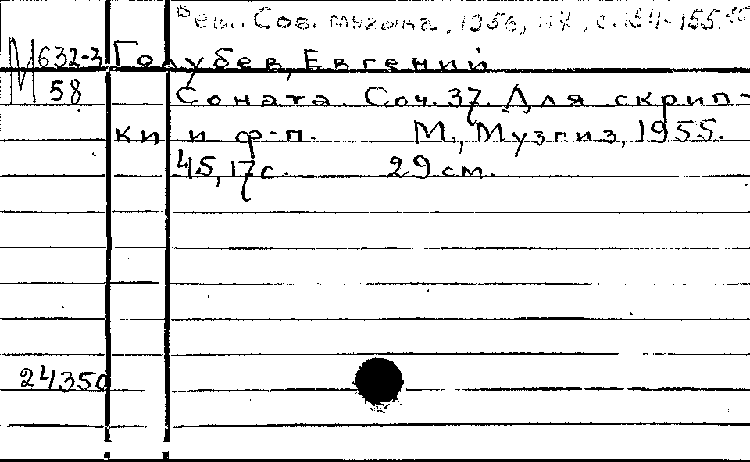 Рец. Сов. музыка, 1956, №7, с. 154-155.
М632-3 Голубев, Евгений
58 Соната. Соч. 37. Для скрип-
ки и ф-п. М., Музгиз, 1955.
45, 17с. 29 см.
24350